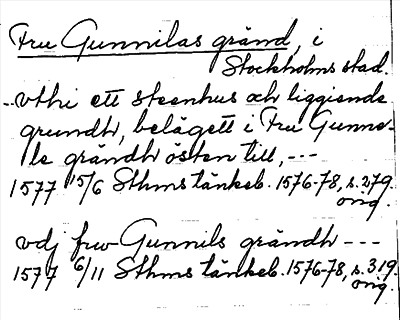 Fru Gunnilas gränd, i
Stockholms stad.
--vthi ett steenhus och liggiende
grundh, belägett i Fru Gunne-
le grändh östen till, ---
1577 15/6 Sthms tänkeb. 1576-78, s. 279.
orig.
vdj frw Gunnils grändh ---
1577 6/11 Sthms tänkeb. 1576-78, s. 319.
orig.